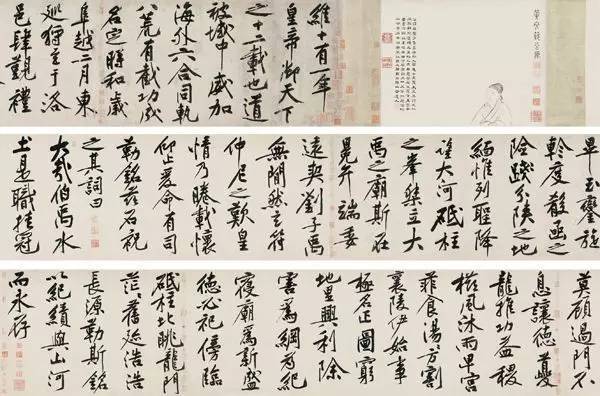 維十有一年
皇帝御天下
之十二載也道
被域中威加
海外六合同軌
八荒有截功成
名定時和歲
阜越二月東
巡狩至于洛
邑肆覲禮
畢玉鑾旋
軫度殽函之
險踐分陝之地
緬惟列聖降
望大河砥柱
之峯桀立大
禹之廟斯在
冕弁端委
遠契劉子禹
無閒然玄符
仲尼之歎皇
情乃睠載懷
仰止爰命有司
勒銘茲石祝
之其詞曰
大哉伯禹水
土是職挂冠
莫顧過門不
息讓德夔
龍推功益稷
櫛風沐雨卑宮
菲食湯湯方割
襄陵伊始事
極名正圖窮
地里興利除
害爲綱爲紀
寢廟爲新盛
德必祀傍臨
砥柱北眺龍門
茫茫舊迹浩浩
長源勒斯銘
以紀績與山河
而永存